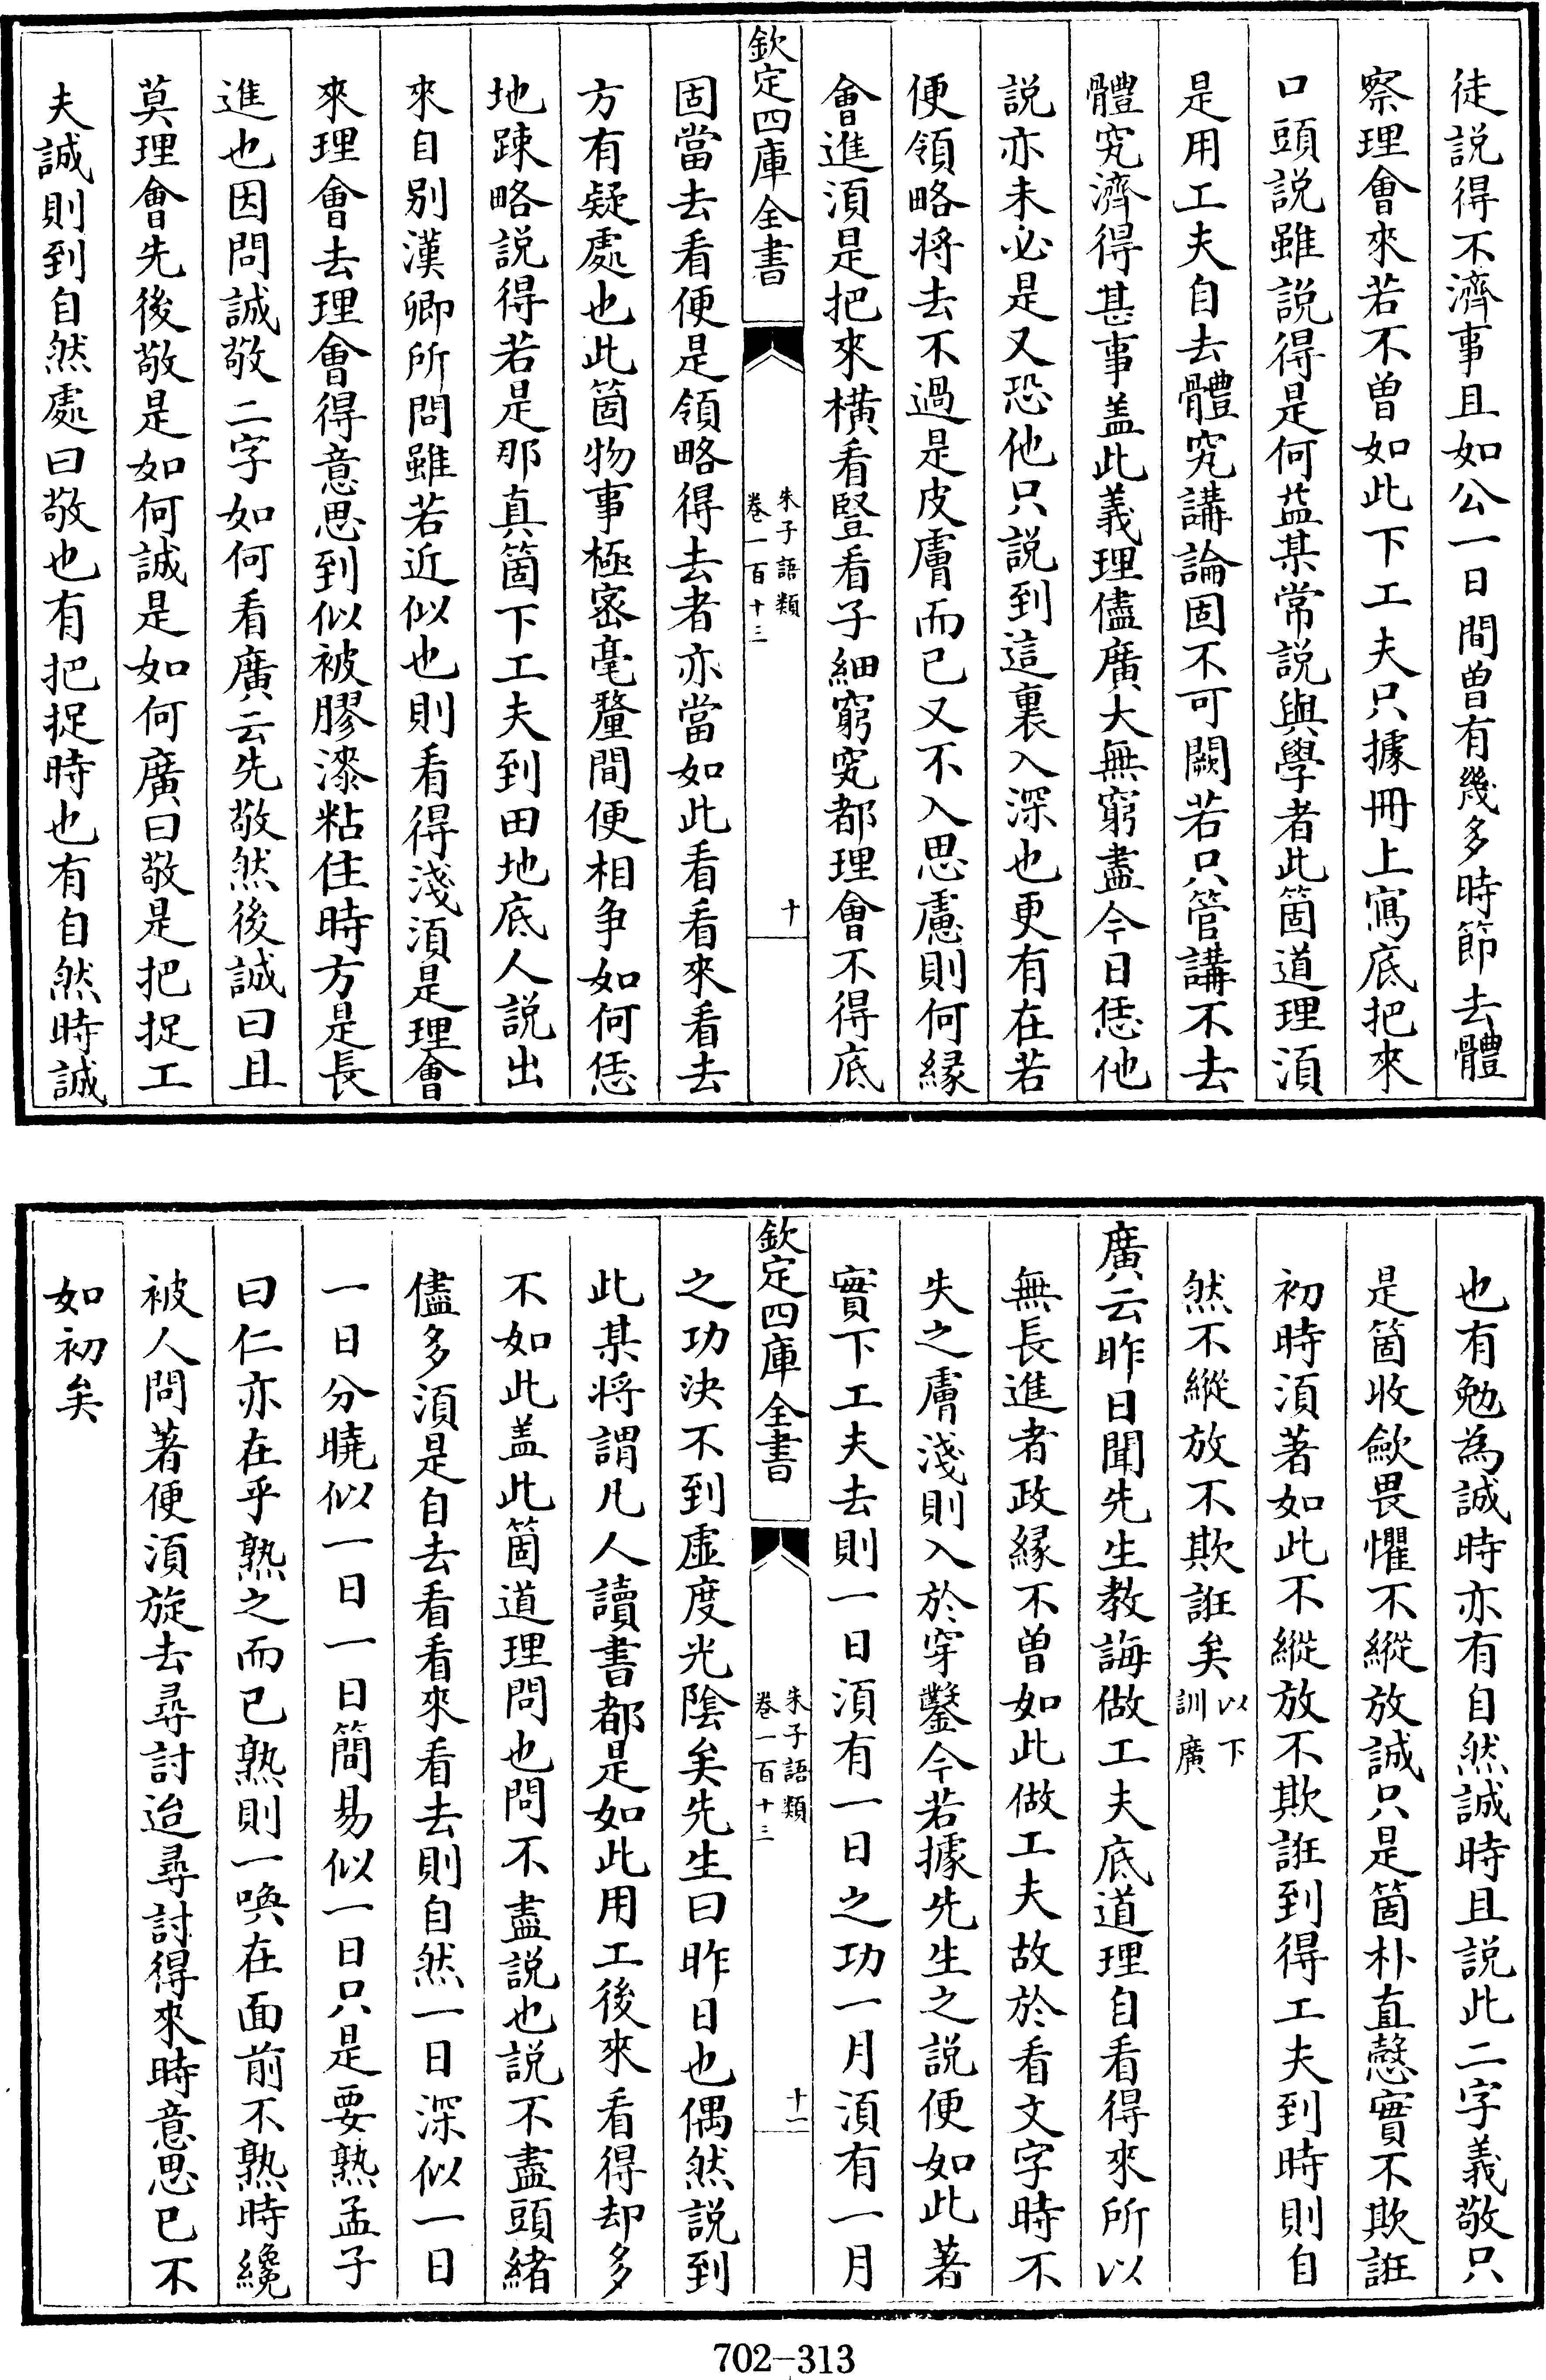 徒説得不濟事且如公一日間曾有幾多時節去體
察理會來若不曾如此下工夫只據冊上寫底把來
口頭説雖説得是何益某常説與學者此箇道理須
是用工夫自去體究講論固不可闕若只管講不去
體究濟得甚事盖此義理儘廣大無窮盡今日恁他
説亦未必是又恐他只説到這裏入深也更有在若
便領略將去不過是皮膚而已又不入思慮則何縁
會進須是把來横看豎看子細窮究都理會不得底
欽定四庫全書
朱子語類
卷一百十三
十
固當去看便是領略得去者亦當如此看看來看去
方有疑處也此箇物事極宻毫釐間便相争如何恁
地踈略説得若是那真箇下工夫到田地底人説出
來自别漢卿所問雖若近似也則看得淺須是理會
來理會去理會得意思到似被膠漆粘住時方是長
進也因問誠敬二字如何看廣云先敬然後誠曰且
莫理會先後敬是如何誠是如何廣曰敬是把捉工
夫誠則到自然處曰敬也有把捉時也有自然時誠
也有勉為誠時亦有自然誠時且説此二字義敬只
是箇收斂畏懼不縱放誠只是箇朴直慤實不欺誑
初時須著如此不縱放不欺誑到得工夫到時則自
然不縱放不欺誑矣以下
訓廣
廣云昨日聞先生教誨做工夫底道理自看得來所以
無長進者政縁不曾如此做工夫故於看文字時不
失之膚淺則入於穿鑿今若據先生之説便如此著
實下工夫去則一日須有一日之功一月須有一月
欽定四庫全書
朱子語類
卷一百十三
十一
之功決不到虚度光陰矣先生曰昨日也偶然説到
此某将謂凡人讀書都是如此用工後來看得却多
不如此盖此箇道理問也問不盡説也説不盡頭緒
儘多須是自去看看來看去則自然一日深似一日
一日分曉似一日一日簡易似一日只是要熟孟子
曰仁亦在乎熟之而已熟則一喚在面前不熟時纔
被人問著便須旋去尋討迨尋討得來時意思已不
如初矣
702-313